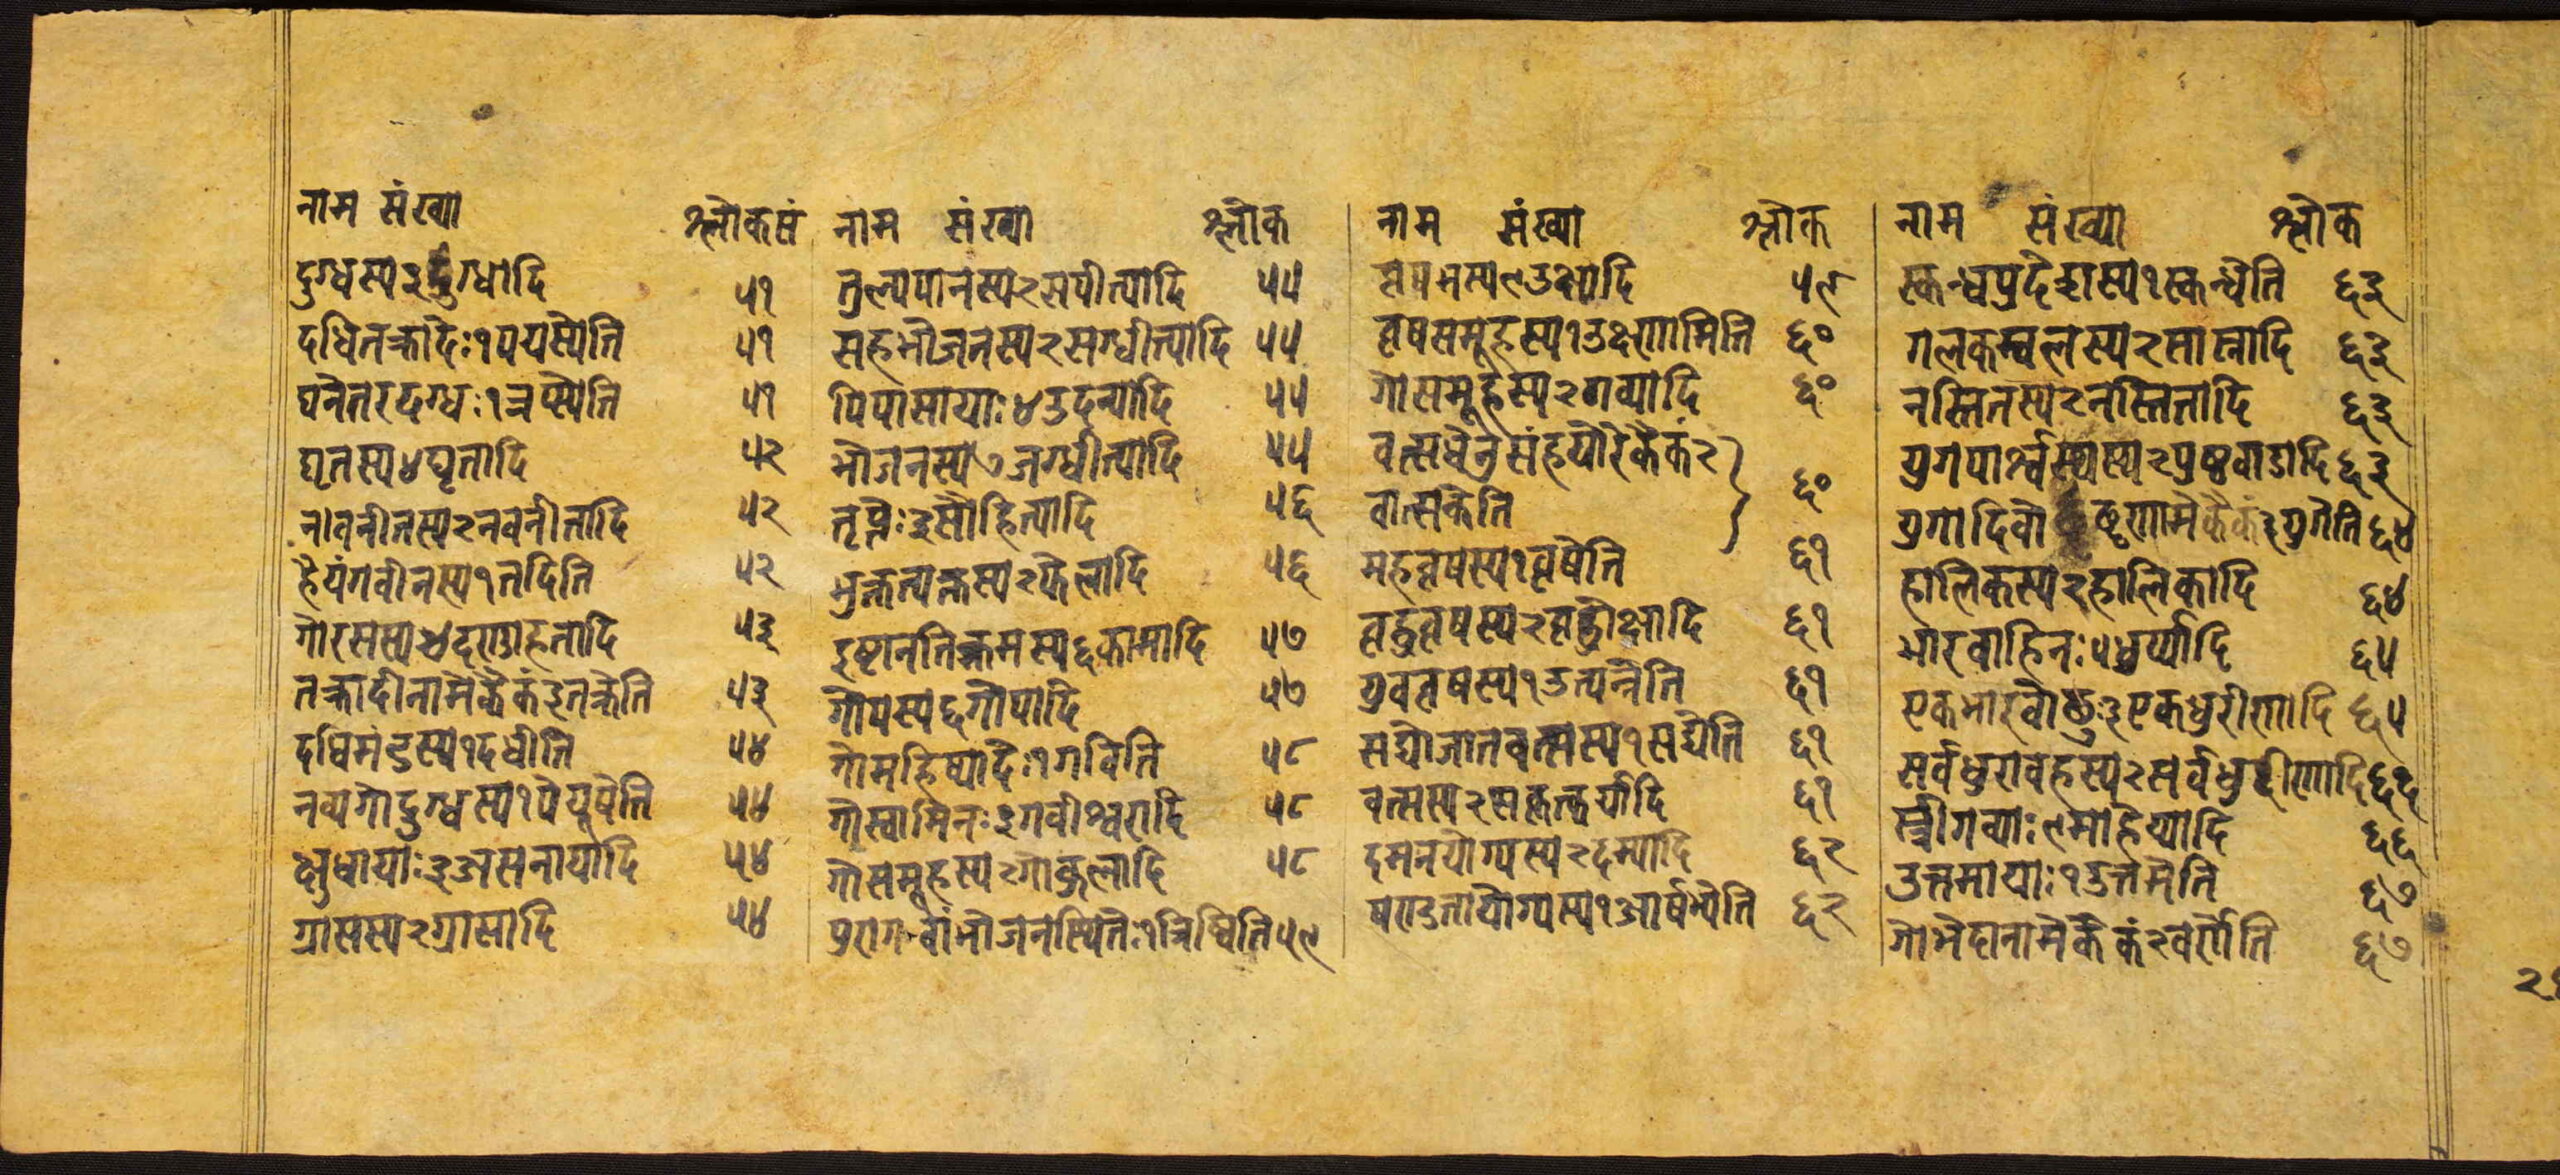 नाम संख्या श्लोकसं
दुग्धस्य३दुग्धादि ५१
दधितक्रादेः१पयस्येति ५१
घनेतरदग्धः१त्रप्स्येति ५१
घृतस्य४घृतादि ५२
नावनीतस्य२नवनीतादि ५२
हैयंगवीनस्य१तदिति ५२
गोरसस्य४दण्डाहतादि ५३
तक्रादीनामेकैकं३तक्रेति ५३
दधिमंडस्य१दधीति ५४
नव्यगोदुग्धस्य१पेयूषेति ५४
क्षुधायाः३असनायादि ५४
ग्रासस्य२ग्रासादि ५४
नाम संख्या श्लोक
तुल्यपानस्य२सपीत्यादि ५५
सहभोजनस्य२सग्धीत्यादि ५५
पिपासायाः४उदन्यादि ५५
भोजनस्य७जग्धीत्यादि ५५
तृप्तेः३सौहित्यादि ५६
भुक्तत्यक्तस्य२फेलादि ५६
इष्टानतिक्रमस्य६कामादि ५७
गोपस्य६गोपादि ५७
गोमहिष्यादेः१गविति ५८
गोस्वामिनः३गवीश्वरादि ५८
गोसमूहस्य२गोकुलादि ५८
पुरागवांभोजनस्थिते१त्रिष्विति ५९
नाम संख्या श्लोक
वृषभस्य९उक्षादि ५९
वृषसमूहस्य१उक्षणामिति ६०
गोसमूहस्य२गव्यादि ६०
वत्सधेनुसंहयोरेकैकं२
वात्सकेति ६०
महवृषस्य१वृषेति ६१
वृद्धवृषस्य२वृद्धोक्षादि ६१
युववृषस्य१उत्पन्नेति ६१
सद्योजातवत्सस्य१सद्येति ६१
वत्सस्य२सकृत्कर्यादि ६१
दमनयोग्यस्य२दम्यादि ६२
षण्डतायोग्यस्य१आर्षभ्येति ६२
नाम संख्या श्लोक
स्कन्धप्रदेशस्य१स्कन्धेति ६३
गलकम्वलस्य२सास्नादि ६३
नस्तितस्य२नस्तितादि ६३
युगपार्श्वस्थस्य२प्रष्ठवाडादि ६३
युगादिवो ढॄणामेकैकं३युगेति ६४
हालिकस्य२हालिकादि ६४
भारवाहिनः५धुर्य्यादि ६५
एकभारवोढुः३एकधुरीणादि ६५
सर्वधुरावहस्य२सर्वधुरीणादि ६६
स्त्रीगव्याः९माहेय्यादि ६६
उत्तमायाः१उत्तमेति ६७
गोभेदानामेकैकं२वर्णेति ६७